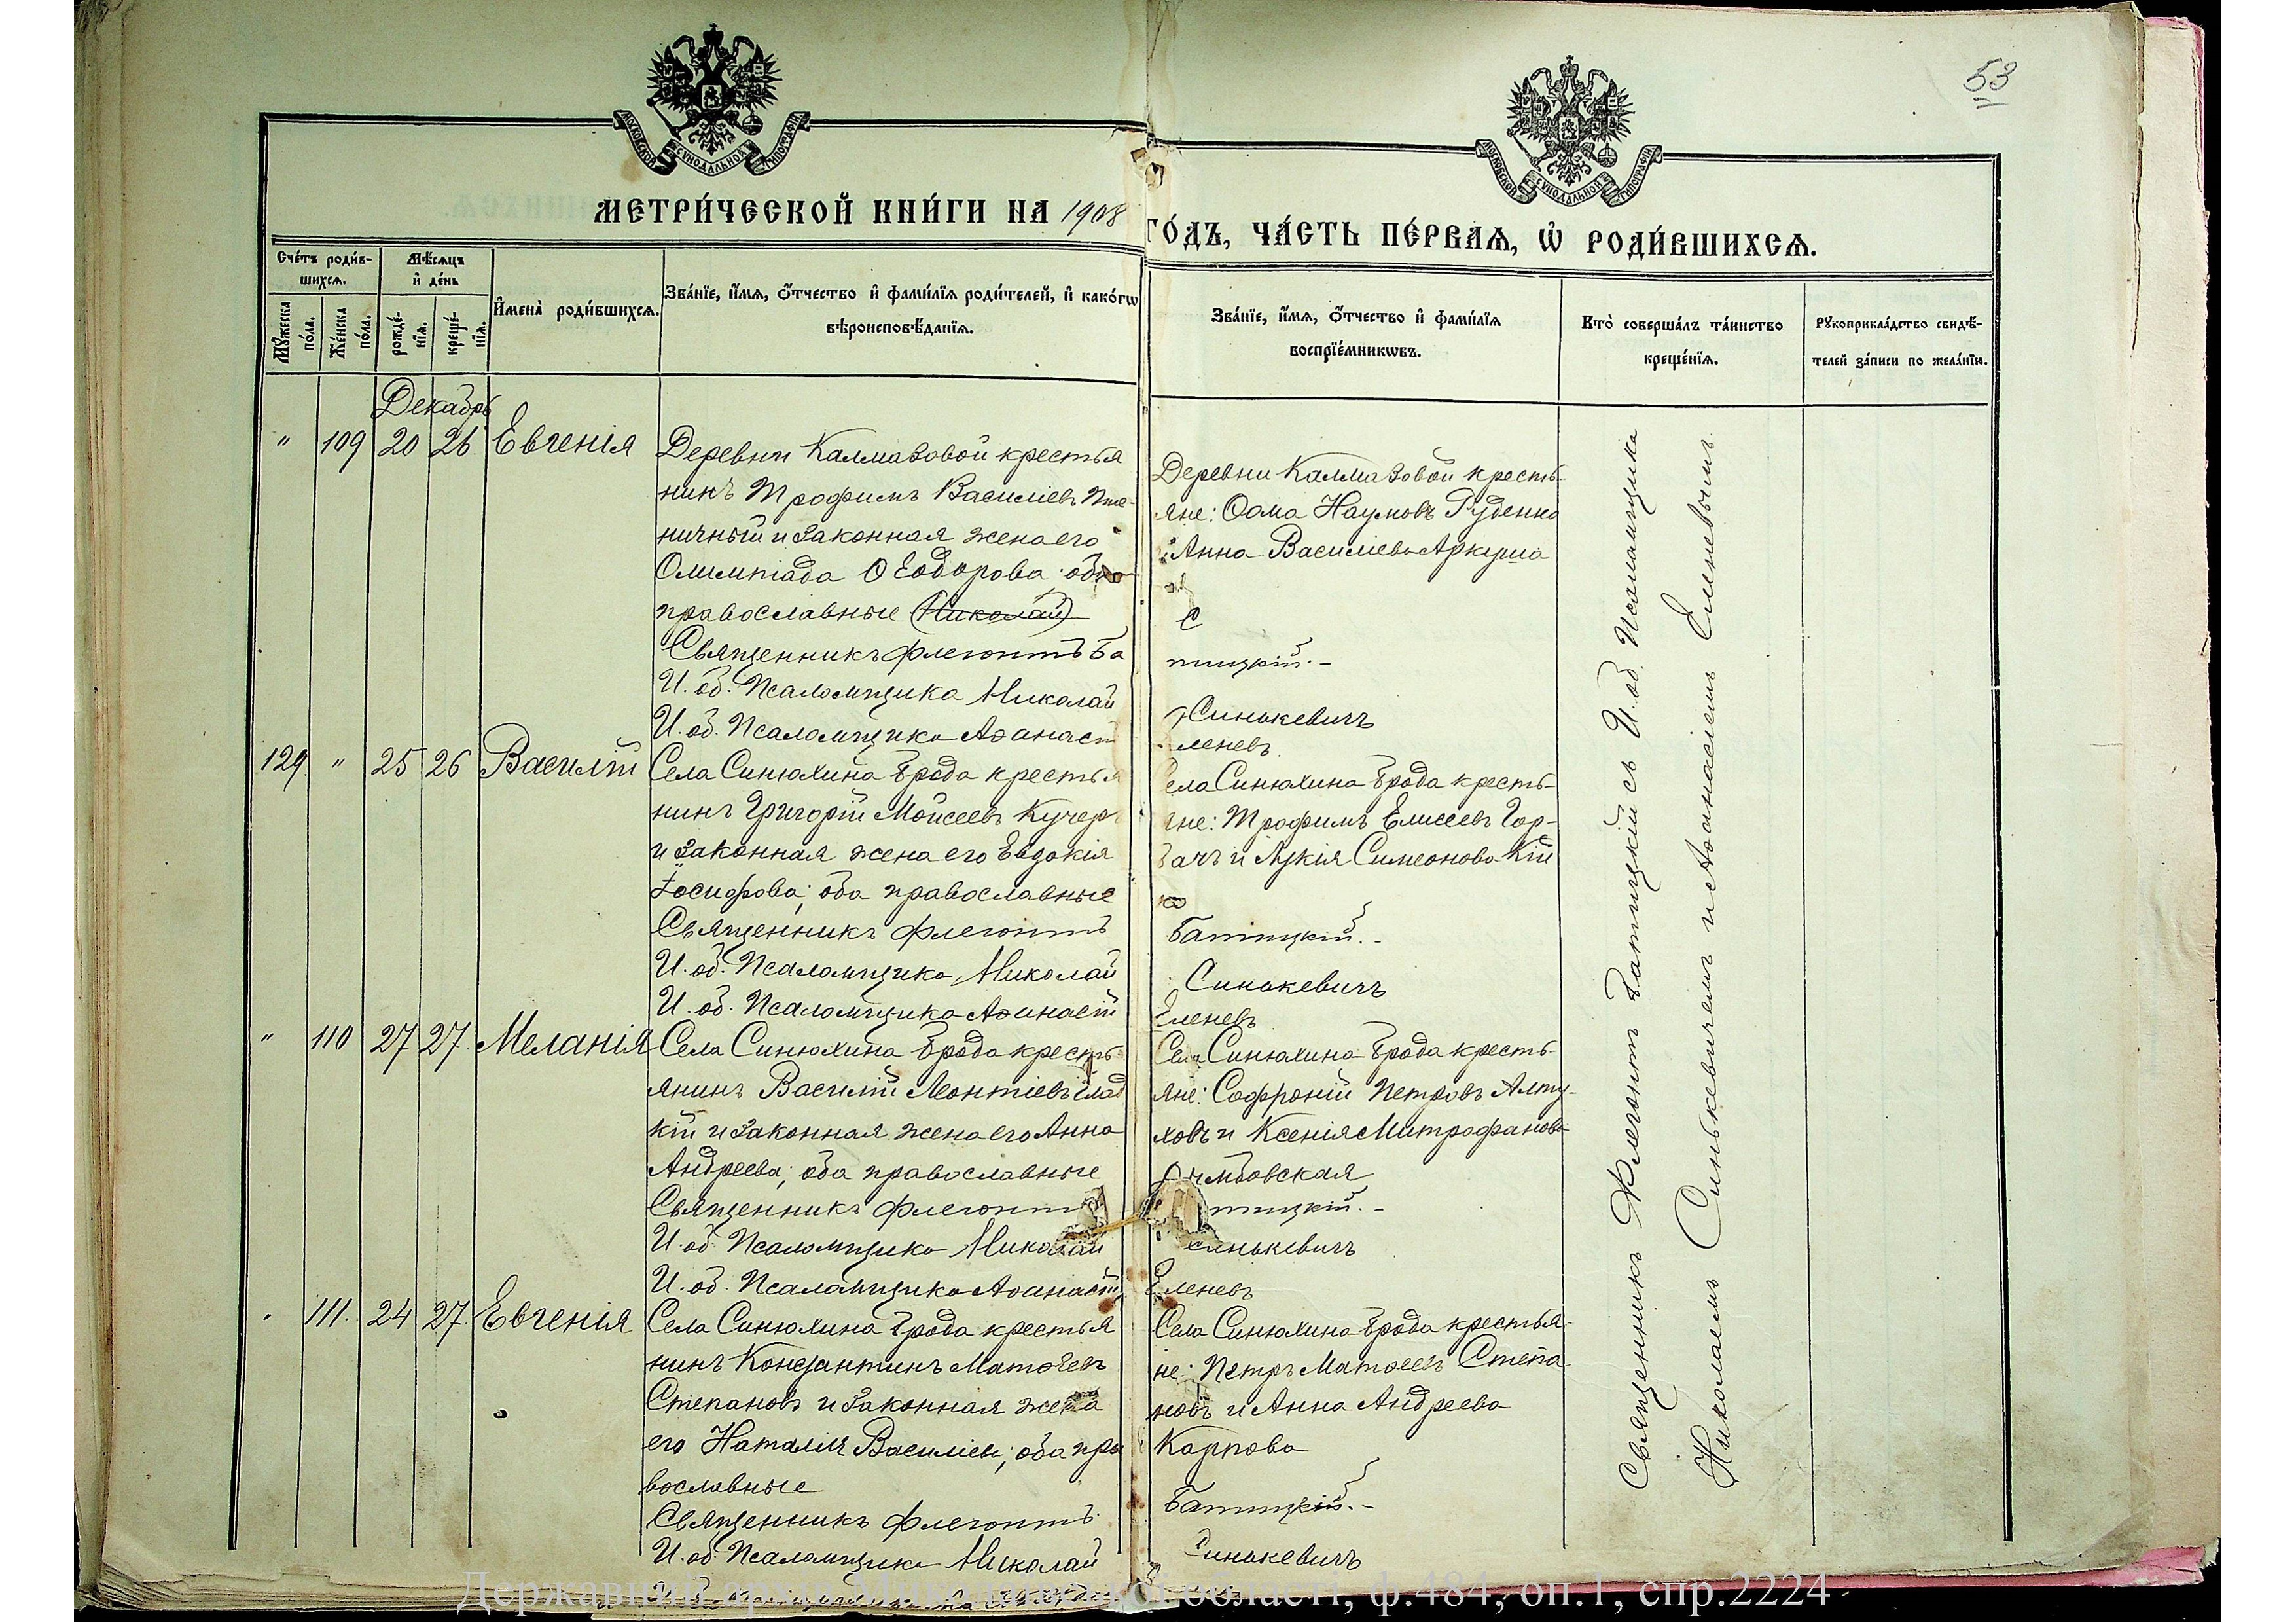 53
МОСКОВСКОЙ СѴНОДАЛЬНОЙ ТИПОГРАФІИ
МОСКОВСКОЙ СѴНОДАЛЬНОЙ ТИПОГРАФІИ
МЕТРИ́ЧЕСКОЙ КНИ́ГИ НА 1908
ГО́ДЪ, ЧА́СТЬ ПЕ́РВАѦ, Ѡ҆ РОДИ́ВШИХСѦ.
Сче́тъ роди́в-
шихсѧ.
Мѣ́сѧцъ
и҆ де́нь
Мꙋ́жеска
по́ла.
Же́нска
по́ла.
рожде́-
нїѧ.
креще́-
нїѧ.
И҆мена̀ роди́вшихсѧ.
Зва́нїе, и҆́мѧ, ѻ҆́тчество и҆ фами́лїѧ роди́телей, и҆ како́гѡ
вѣроисповѣ́данїѧ.
Зва́нїе, и҆́мѧ, ѻ҆́тчество и҆ фами́лїѧ
воспрїе́мникѡвъ.
Кто̀ соверша́лъ та́инство
креще́нїѧ.
Рꙋкоприкла́дство свидѣ́-
телей за́писи по жела́нїю.
Декабрь
" 109 20 26 Евгенія
Деревни Калмазовой крестья
нинъ Трофимъ Василіевъ Пше-
ничный и законная жена его
Олимпіада Ѳеодорова оба
православные (Николай)
Священникъ Флегонтъ Ба
И. об. Псаломщика Николай
И. об. Псаломщика Аѳанасій
Деревни Калмазовой кресть-
яне: Ѳома Наумовъ Руденко
и Анна Василіева Аркуша
тицкій.-
Синькевичъ
Еленевъ
129 " 25 26 Василій
Села Синюхина Брода крестья
нинъ Григорій Моѵсеевъ Кучер
и законная жена его Евдокія
Іосифова; оба православные
Священникъ Флегонтъ
И. об. Псаломщика Николай
И. об. Псаломщика Аѳанасій
Села Синюхина Брода кресть-
яне: Трофимъ Елисеевъ Гор-
бачъ и Лукія Симеонова Кій
ко
Батицкій.-
Синькевичъ
Еленевъ
" 110 27 27 Меланія
Села Синюхина Брода кресть
янинъ Василій Леонтіевъ Глад
кій и законная жена его Анна
Андреева; оба православные
Священникъ Флегонтъ
И. об. Псаломщика Николай
И. об. Псаломщика Аѳанасій
Села Синюхина Брода кресть-
яне: Софроній Петровъ Алту-
ховъ и Ксенія Митрофанова
тицкій.-
Синькевичъ
Еленевъ
" 111. 24 27 Евгенія
Села Синюхина Брода крестья
нинъ Константинъ Матѳеевъ
Степановъ и законная жена
его Наталія Василіева; оба пра
вославные
Священникъ Флегонтъ
И. об. Псаломщика Николай
Села Синюхина Брода крестья-
не: Петръ Матѳеевъ Степа-
новъ и Анна Андреева
Карпова
Батицкій.-
Синькевичъ
Священникъ Флегонтъ Батицкій съ И. об. Псаломщика
Николаемъ Синькевичемъ и Аѳанасіемъ Еленевымъ
Державний архів Миколаївської області, ф.484, оп.1, спр.2224